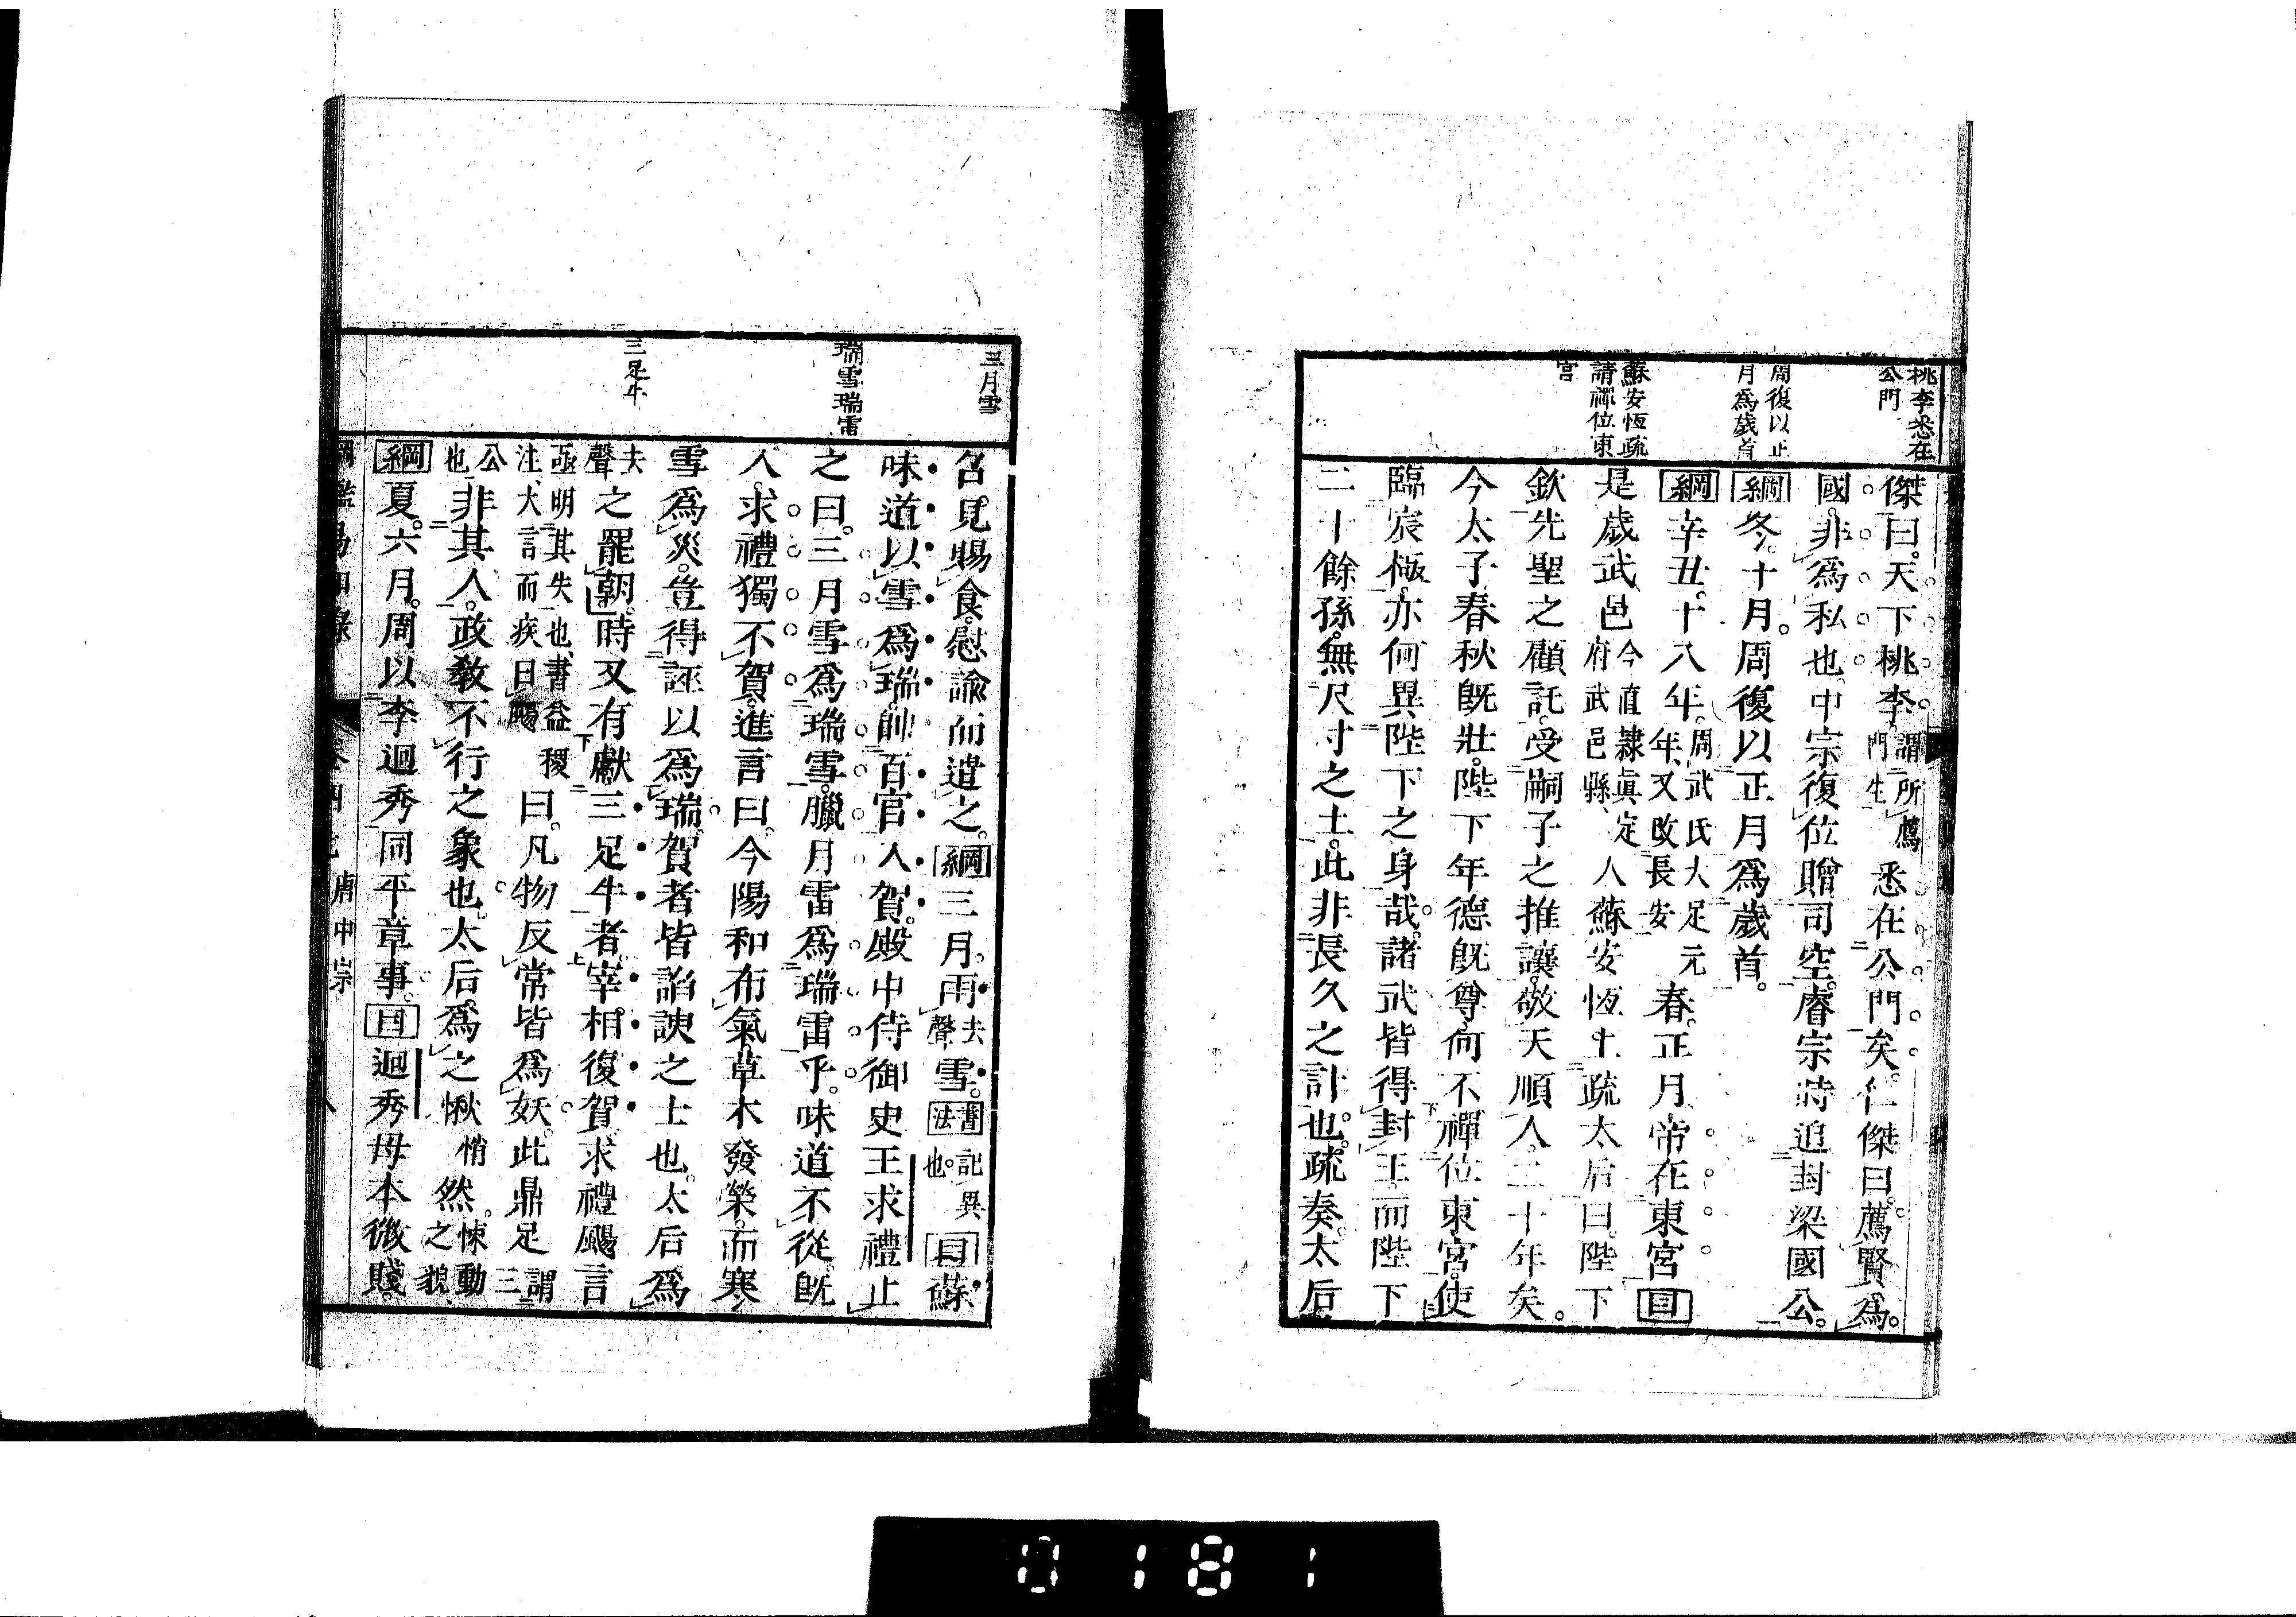 桃李悉在
公門
周復以正
月爲歲首
蘇安恆疏
請禪位東
宮
傑曰。天下桃李。謂所薦門生悉在公門矣。仁傑曰。薦賢爲
國。非爲私也。中宗復位贈司空。睿宗時追封梁國公。
綱冬。十月。周復以正月爲歲首。
綱辛丑。十八年。周武氏大足元年、又改長安春。正月帝在東宮目
是歲武邑今直隷眞定府武邑縣、人蘇安恆上疏太后曰。陛下
欽先聖之顧託。受嗣子之推讓。敬天順人。二十年矣。
今太子春秋旣壯。陛下年德旣尊。何不禪位東宮。使
臨宸極。亦何異陛下之身哉。諸武皆得封王。而陛下
二十餘孫。無尺寸之土。此非長久之計也。疏奏。太后
三月雪
瑞雪瑞雷
三足牛
召見賜食。慰諭而遣之。綱三月。雨去聲雪。書法記異也。目蘇
味道以雪爲瑞。帥百官入賀。殿中侍御史王求禮止
之曰。三月雪爲瑞雪。臘月雷爲瑞雷乎。味道不從。旣
入。求禮獨不賀。進言曰。今陽和布氣。草木發榮。而寒
雪爲災。豈得誣以爲瑞。賀者皆諂諛之士也。太后爲
去聲之罷朝。時又有獻三足牛者。宰相復賀。求禮颺言
亟明其失也、書益稷注、大言而疾曰颺曰。凡物反常皆爲妖。此鼎足謂三
公也、非其人。政敎不行之象也。太后爲之愀悄然。悚動之貌
綱夏。六月。周以李迥秀同平章事。目迥秀母本微賤。
唐中宗